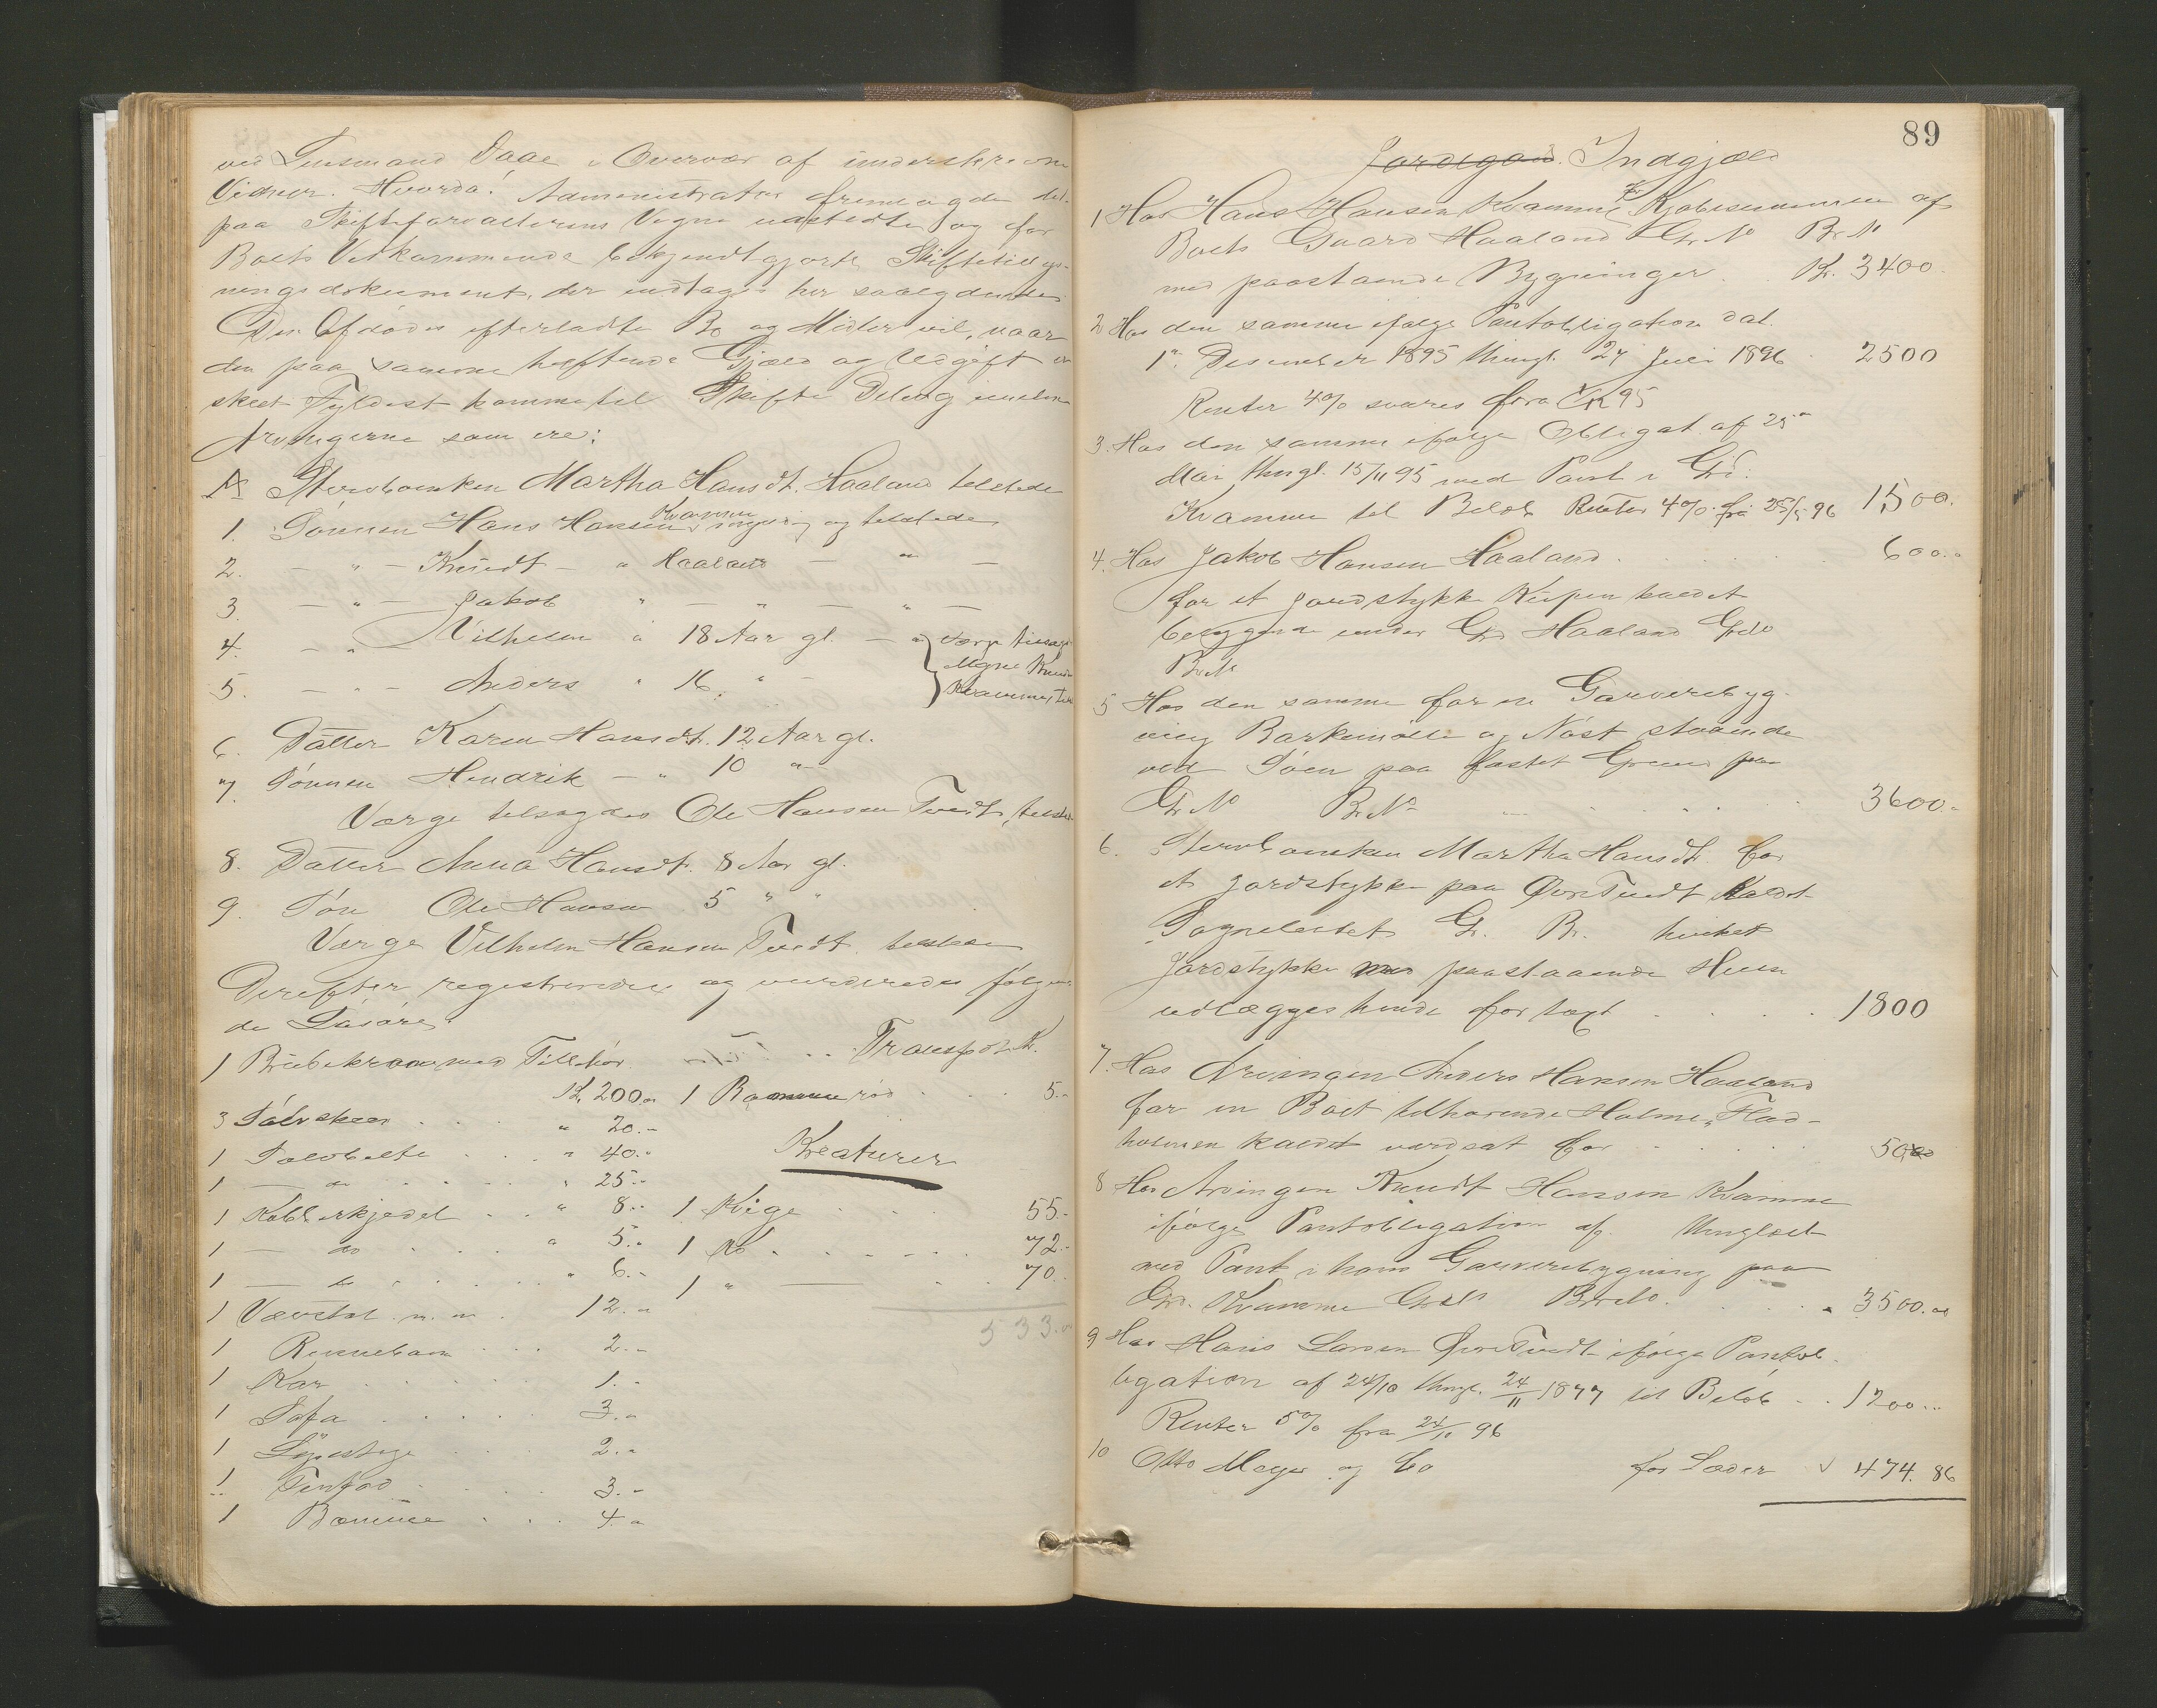 ved Lensmand Daae i Overvær af underskrevne
Vidner. Hvorda! Administrator fremlagde det
paa Skifteforvalterens Vegne udstedte og for
Boets Vedkommende bekjendtgjorte Skiftetillys-
ningsdokument, der indtages her saalydende
Den Afdødes efterladte Bo og Midler vil, naar
den paa samme heftende Gjæld og Udgift er
skeet Fyldest komme til Skifte Deling imellem
Arvingerne som ere:
A Stervboenken Martha Hansdt. Haaland tilstede
1. Sønnen Hans Hansen Kvamme myndig og tilstede
2. — " — Knudt — " Haaland — " —
3 — " — Jakob " — " — " —
4. — " — Vilhelm " 18 Aar gl. — " } Værge tilsagt
Mons Knudsen
5. — " — Anders " 16 " — } Kvamme, tilst
6. Datter Karen Hansdt. 12 Aar gl.
7. Sønnen Hendrik — " 10 "
Værge tilsagdes Ole Hansen Tvedt, tilsted
8. Datter Anna Hansdt. 8 Aar gl.
9. Søn Ole Hansen 5 " "
Værge Vilhelm Hansen Tvedt tilstede
Derefter registreredes og vurderedes følgen-
de Løsøre:
1 Brudekrone med Tilbehør
Kr. 200.00
3 Sølvskeer . . . " 20.-
1 Sølvbelte . . . " 40.-
1 — do . . . . " 25.-
1 Kobberkjedel . . " 8.-
1 — do . . . " 5.-
1 — do . . . . " 6.-
1 Vævstol m. m. . 12.-
1 Rennebom . . . 2.-
1 Kar . . . . . 1.-
1 Sofa . . . . . 3.-
1 . . . 2.-
1 . . . . 3.-
1 Bomme . . . 4.-
Transport Kr.
1 Bomme rød . . . 5.-
Kreaturer
1 Kvige . . . . 55.-
1 Ko . . . . . . 72.-
1 " — . . 70.-
533.00
89
Jordegods. Indgjæld
1 Hos Hans Hansen Kvamme for Kjøbesummen af
Boets Gaard Haaland Gr. No Br. No
med paastaaende Bygninger. Kr. 3400
2 Hos den samme ifølge Pantobligation dat.
1ste Desember 1895 thingl. 27 Juli 1896 . 2500
Renter 4% svares fra 1/12 95
3. Hos den samme ifølge Obligat. af 25de
Mai thingl. 15/11 95 med Pant i Grd.
Kvamme til Beløb Renter 4% fra 25/5 96 1500.
4. Hos Jakob Hansen Haaland . . . . . 600..
for et Jordstykke Kupen kaldet
beliggende under Grd Haaland GrNo
Br. No
5 Hos den samme for en Garverebyg-
ning Barkemølle og Nøst staaende
ved Søen paa fæstet Grund paa
Gr. No Br. No . . . . . 3600.-
6. Stervboenken Martha Hansdt. for
et Jordstykke paa Øvre Tvedt kaldet
Sognelestet Gr. Br. hvilket
Jordstykke med paastaaende Huse
udlægges hende for taxt . . . . 1800
7. Hos Arvingen Anders Hansen Haaland
for en Boet tilhørende Holme, Flad-
holmen kaldet værdsat for . . . . 50,00
8 Hos Arvingen Knudt Hansen Kvamme
ifølge Pantobligation af thinglæst
med Pant i hans Garverebygning paa
Grd. Kvamme Gr.No Br.No. . . . . 3500.00
9 Hos Hans Larsen Øvre Tvedt ifølge Pantob-
ligation af 24/10 thingl. 24/11 1877 til Beløb . . 1200..
Renter 5% fra 24/10 96
10 Otto Meyer og Co for Læder √ 474. 86